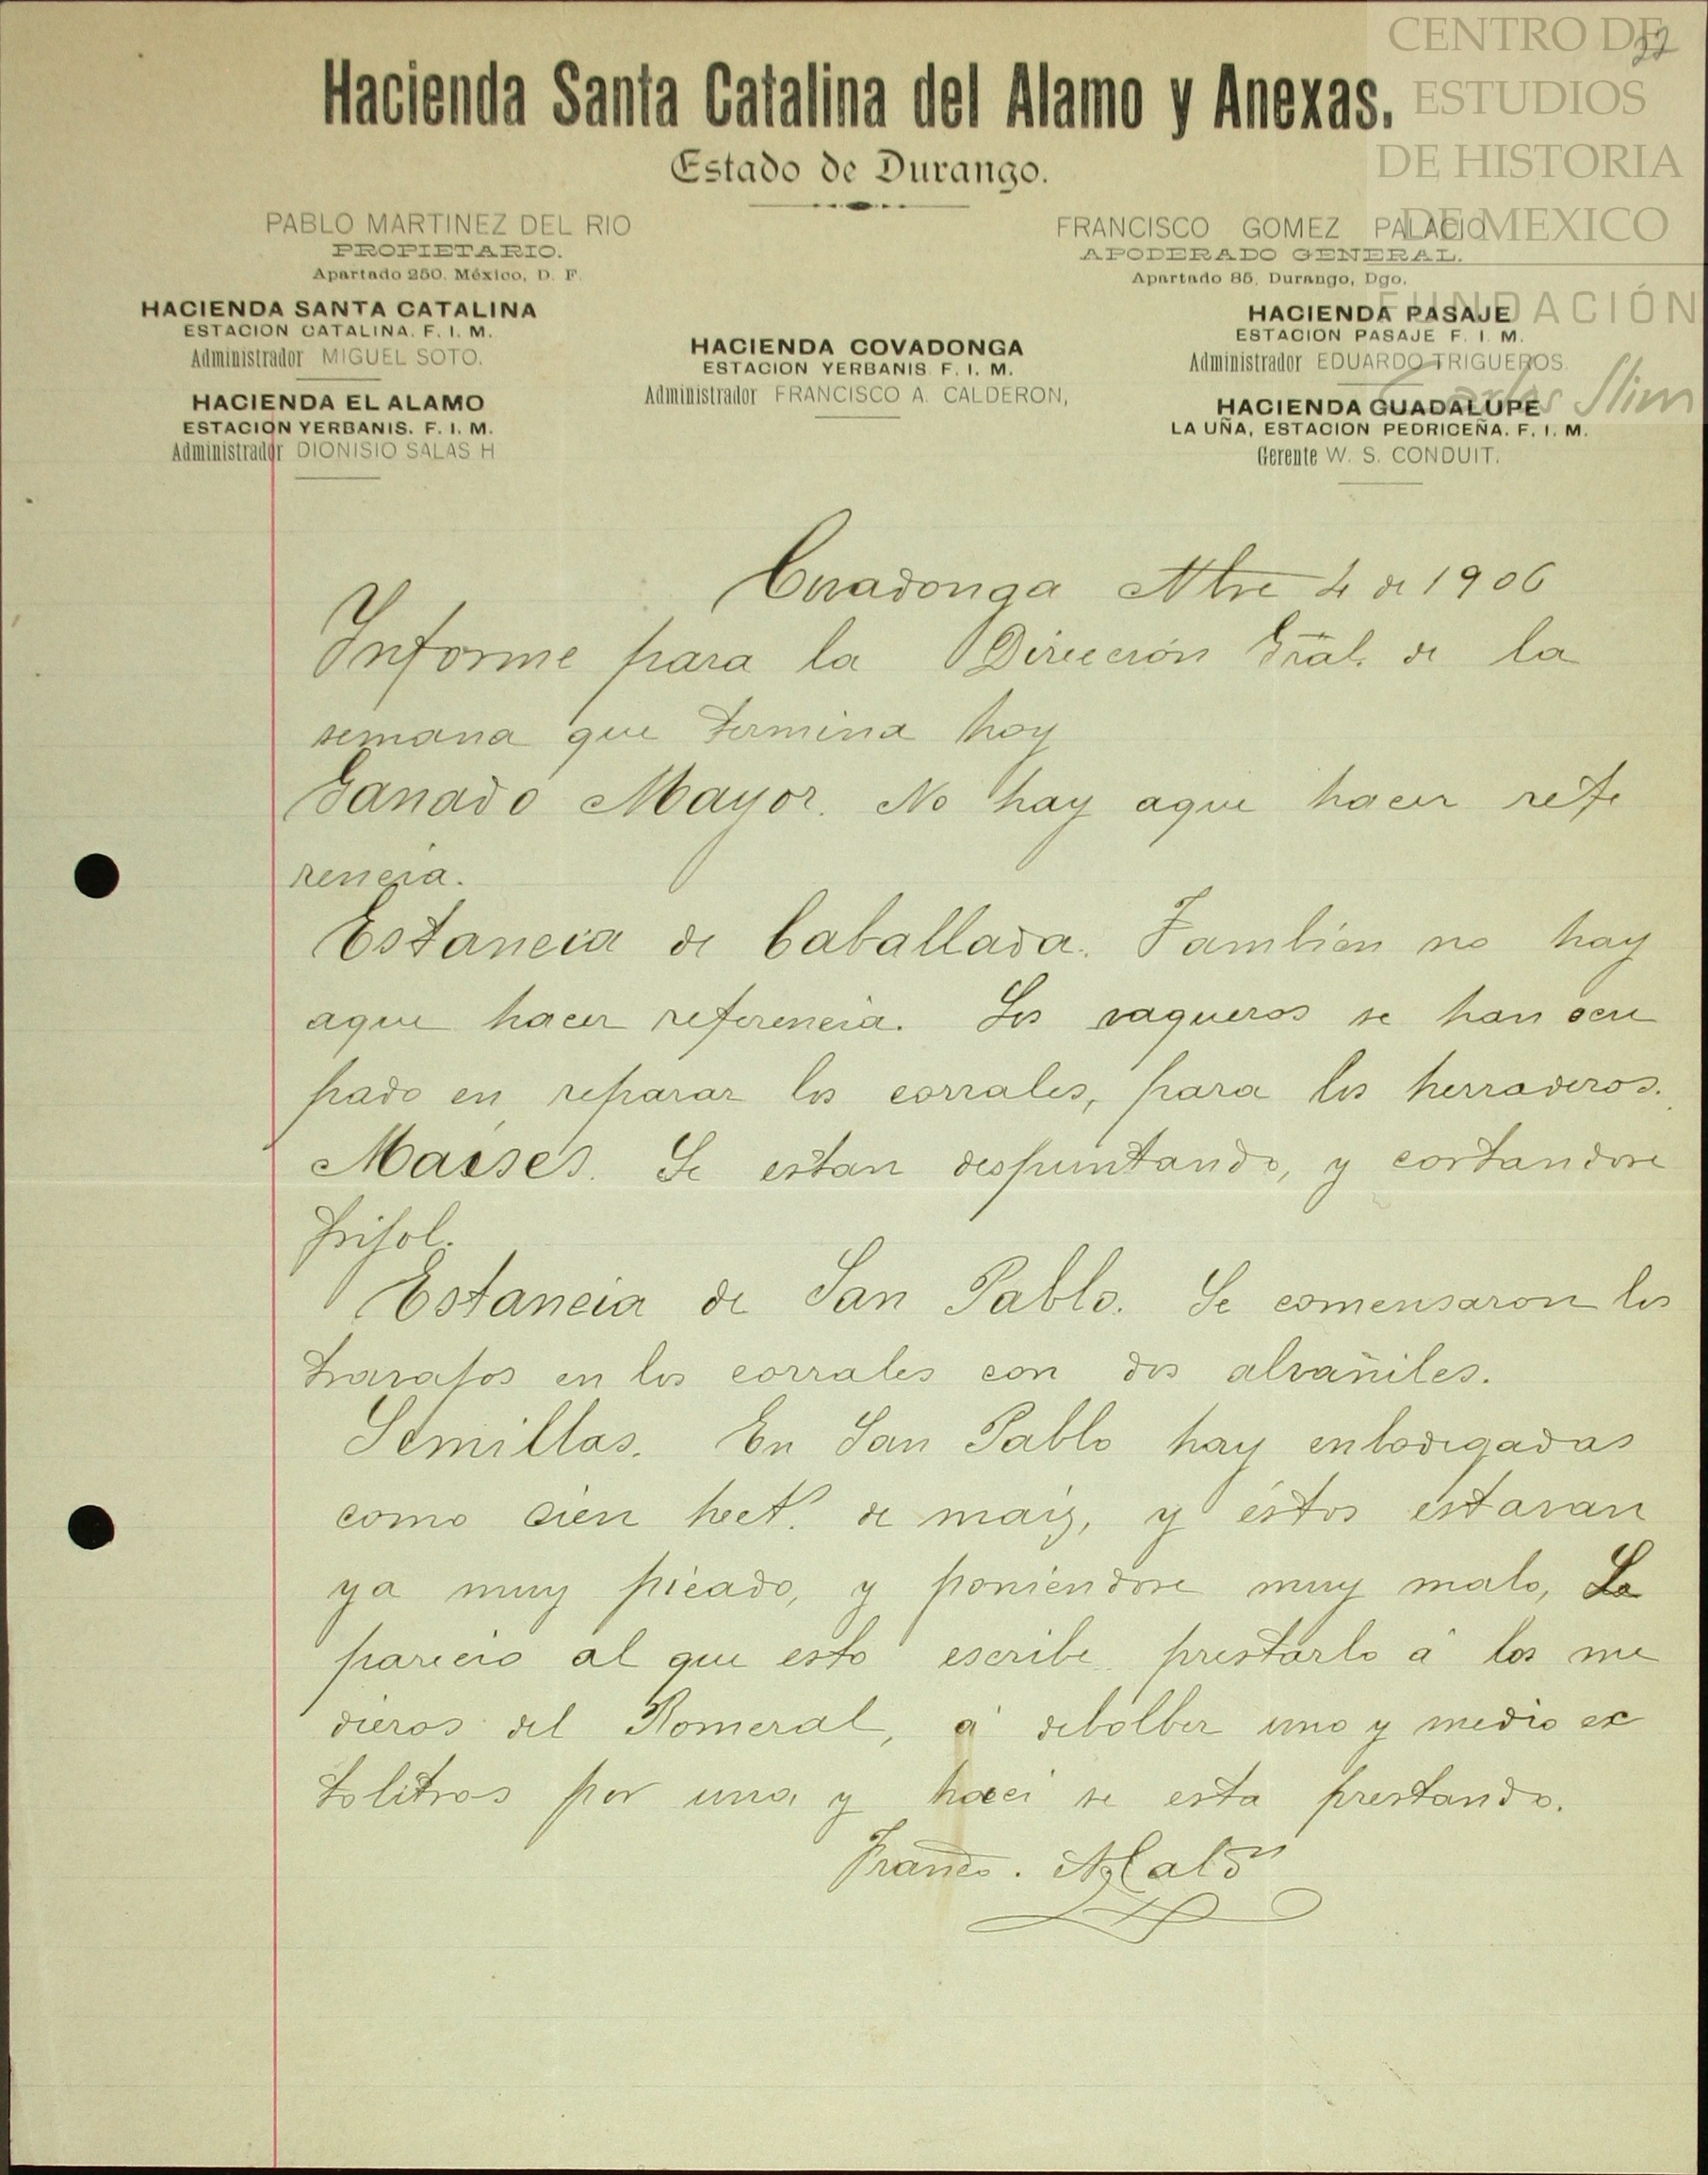 CENTRO DE
ESTUDIOS
DE HISTORIA
DE MEXICO
FUNDACIÓN
Carlos Slim
22
Hacienda Santa Catalina del Alamo y Anexas.
Estado de Durango.
PABLO MARTINEZ DEL RIO
PROPIETARIO.
Apartado 250. México, D. F.
FRANCISCO GOMEZ PALACIO
APODERADO GENERAL.
Apartado 85, Durango, Dgo.
HACIENDA SANTA CATALINA
ESTACION CATALINA. F. I. M.
Administrador MIGUEL SOTO.
HACIENDA EL ALAMO
ESTACION YERBANIS. F. I. M.
Administrador DIONISIO SALAS H
HACIENDA COVADONGA
ESTACION YERBANIS F. I. M.
Administrador FRANCISCO A. CALDERON,
HACIENDA PASAJE
ESTACION PASAJE F. I. M.
Administrador EDUARDO TRIGUEROS.
HACIENDA GUADALUPE
LA UÑA, ESTACION PEDRICEÑA. F. I. M.
Gerente W. S. CONDUIT.
Covadonga Nbre 4 de 1906
Informe para la Dirección Gral. de la
semana que termina hoy
Ganado Mayor. No hay aque hacer refe
rencia.
Estancia de Caballada. Tambien no hay
aque hacer referencia. Los vaqueros se han ocu
pado en reparar los corrales, para los herraderos.
Maises. Se estan despuntando, y cortandose
frijol.
Estancia de San Pablo. Se comensaron los
travajos en los corrales con dos alvañiles.
Semillas. En San Pablo hay enbodegadas
como cien hect.s de maiz, y éstos estavan
ya muy picado, y poniendose muy malo, Le
parecio al que esto escribe prestarlo á los me
dieros del Romeral, á debolber uno y medio ec
tolitros por una y haci se esta prestando.
Franco. A. Calón